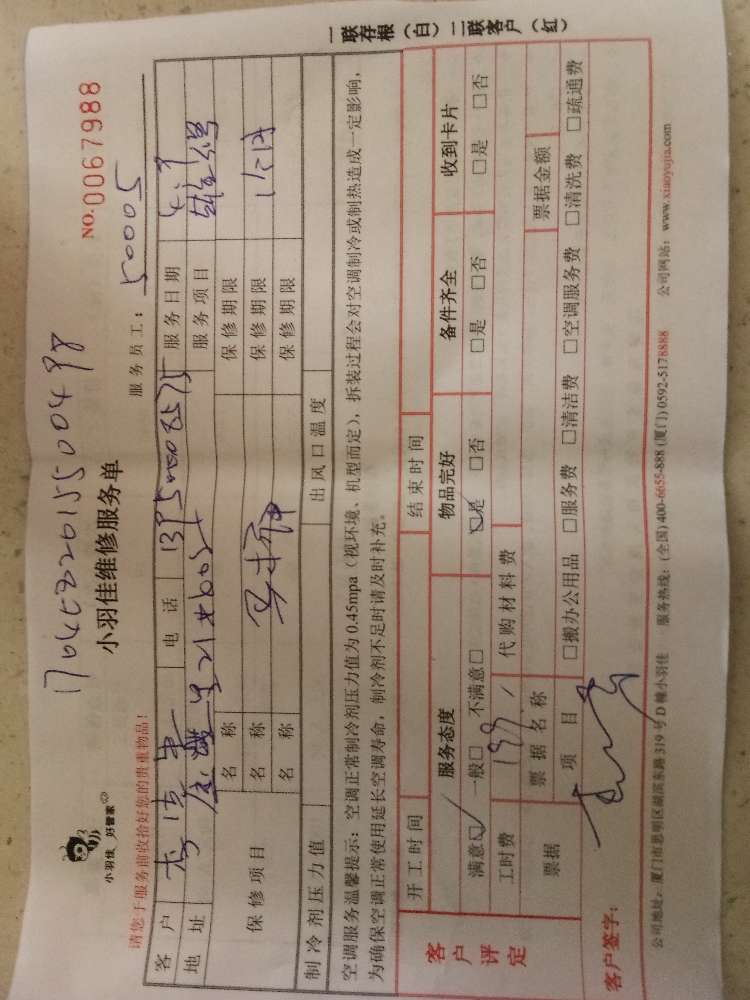 小羽佳 好管家
请您于服务前收拾好您的贵重物品!
小羽佳维修服务单
NO.0067988
服务员工: 50005
客户 电话 服务日期
地址 服务项目 维修
保修项目 名称 保修期限
名称 保修期限
名称 保修期限
制冷剂压力值 出风口温度
空调服务温馨提示:空调正常制冷剂压力值为0.45mpa(视环境、机型而定),拆装过程会对空调制冷或制热造成一定影响,
为确保空调正常使用延长空调寿命,制冷剂不足时请及时补充。
客户评定
开工时间 结束时间
服务态度 物品完好 备件齐全 收到卡片
满意☑ 一般□ 不满意□ ☑是 □否 □是 □否 □是 □否
工时费 代购材料费
票据 票据名称 票据金额
项目 □搬办公用品 □服务费 □清洁费 □空调服务费 □清洗费 □疏通费
客户签字:
公司地址:厦门市思明区湖滨东路319号D幢小羽佳 服务热线:(全国)400-6655-888(厦门)0592-5178888 公司网站:www.xiaoyujia.com
一联存根(白)二联客户(红)